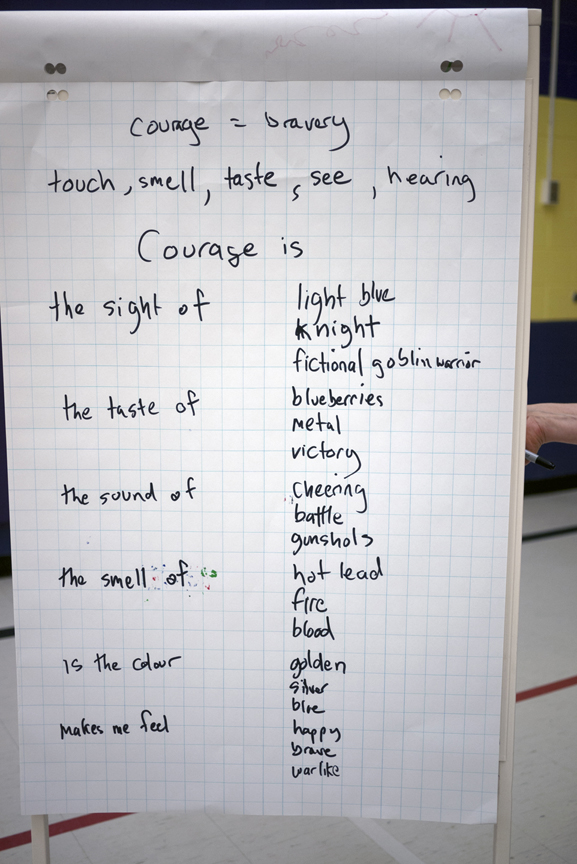 Courage = bravery
touch, smell, taste, see, hearing
Courage is
the sight of light blue
knight
fictional goblin warrior
the taste of blueberries
metal
victory
the sound of cheering
battle
gunshots
the smell of hot lead
fire
blood
is the colour golden
silver
blue
makes me feel happy
brave
warlike